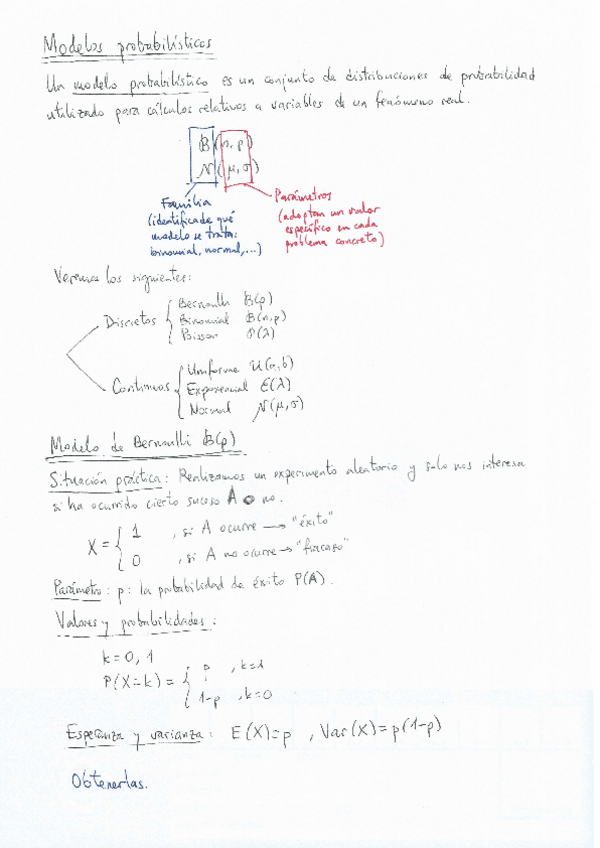 Modelos probabilísticos
Un modelo probabilístico es un conjunto de distribuciones de probabilidad
utilizado para cálculos relativos a variables de un fenómeno real.
B(n, p)
N(μ, σ)
Familia
(identifica de qué
modelo se trata:
binomial, normal, ...)
Parámetros
(adoptan un valor
específico en cada
problema concreto)
Veremos los siguientes:
Discretos { Bernoulli B(p)
Binomial B(n, p)
Poisson P(λ)
Continuos { Uniforme U(a, b)
Exponencial E(λ)
Normal N(μ, σ)
Modelo de Bernoulli B(p)
Situación práctica: Realizamos un experimento aleatorio y solo nos interesa
si ha ocurrido cierto suceso A o no.
X = { 1 , si A ocurre → "éxito"
0 , si A no ocurre → "fracaso"
Parámetro: p: la probabilidad de éxito P(A).
Valores y probabilidades:
k = 0, 1
P(X=k) = { p , k=1
1-p , k=0
Esperanza y varianza: E(X)=p , Var(X)=p(1-p)
Obtenerlas.